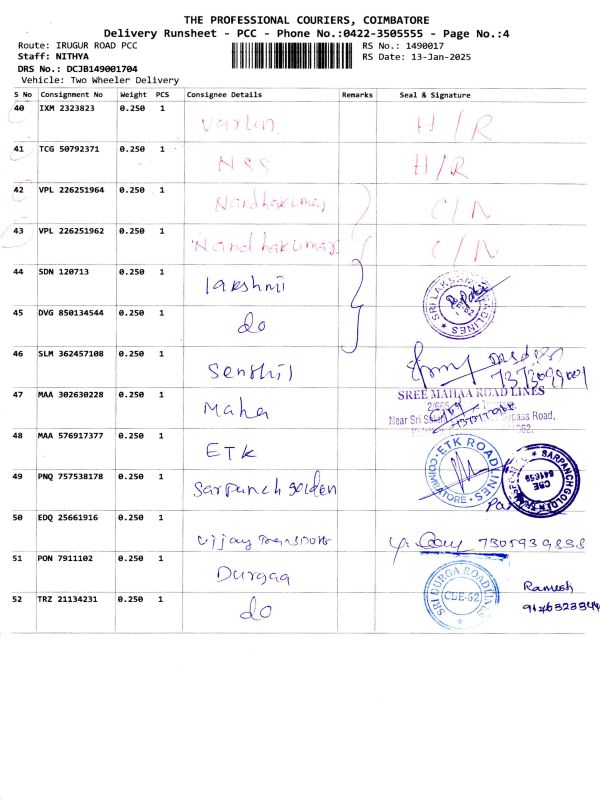 THE PROFESSIONAL COURIERS, COIMBATORE
Delivery Runsheet - PCC - Phone No.:0422-3505555 - Page No.:4
Route: IRUGUR ROAD PCC RS No.: 1490017
Staff: NITHYA RS Date: 13-Jan-2025
DRS No.: DCJB149001704
Vehicle: Two Wheeler Delivery
S No Consignment No Weight PCS Consignee Details Remarks Seal & Signature
40 IXM 2323823 0.250 1 Varun H/R
41 TCG 50792371 0.250 1 NSS H/R
42 VPL 226251964 0.250 1 Nandhakumar C/N
43 VPL 226251962 0.250 1 Nandhakumar C/N
44 SDN 120713 0.250 1 lakshmi SRI LAKSHMI
45 DVG 850134544 0.250 1 do
46 SLM 362457108 0.250 1 Senthil
47 MAA 302630228 0.250 1 Maha SREE MAHAA ROAD LINES
Near Sri Bypass Road,
48 MAA 576917377 0.250 1 ETK ETK ROADLINES COIMBATORE
49 PNQ 757538178 0.250 1 Sarpanch golden SARPANCH GOLDEN CBE 641659
50 EDQ 25661916 0.250 1 Vijay Transport
51 PON 7911102 0.250 1 Durgaa SRI DURGA ROADLINES CBE-62 Ramesh
52 TRZ 21134231 0.250 1 do